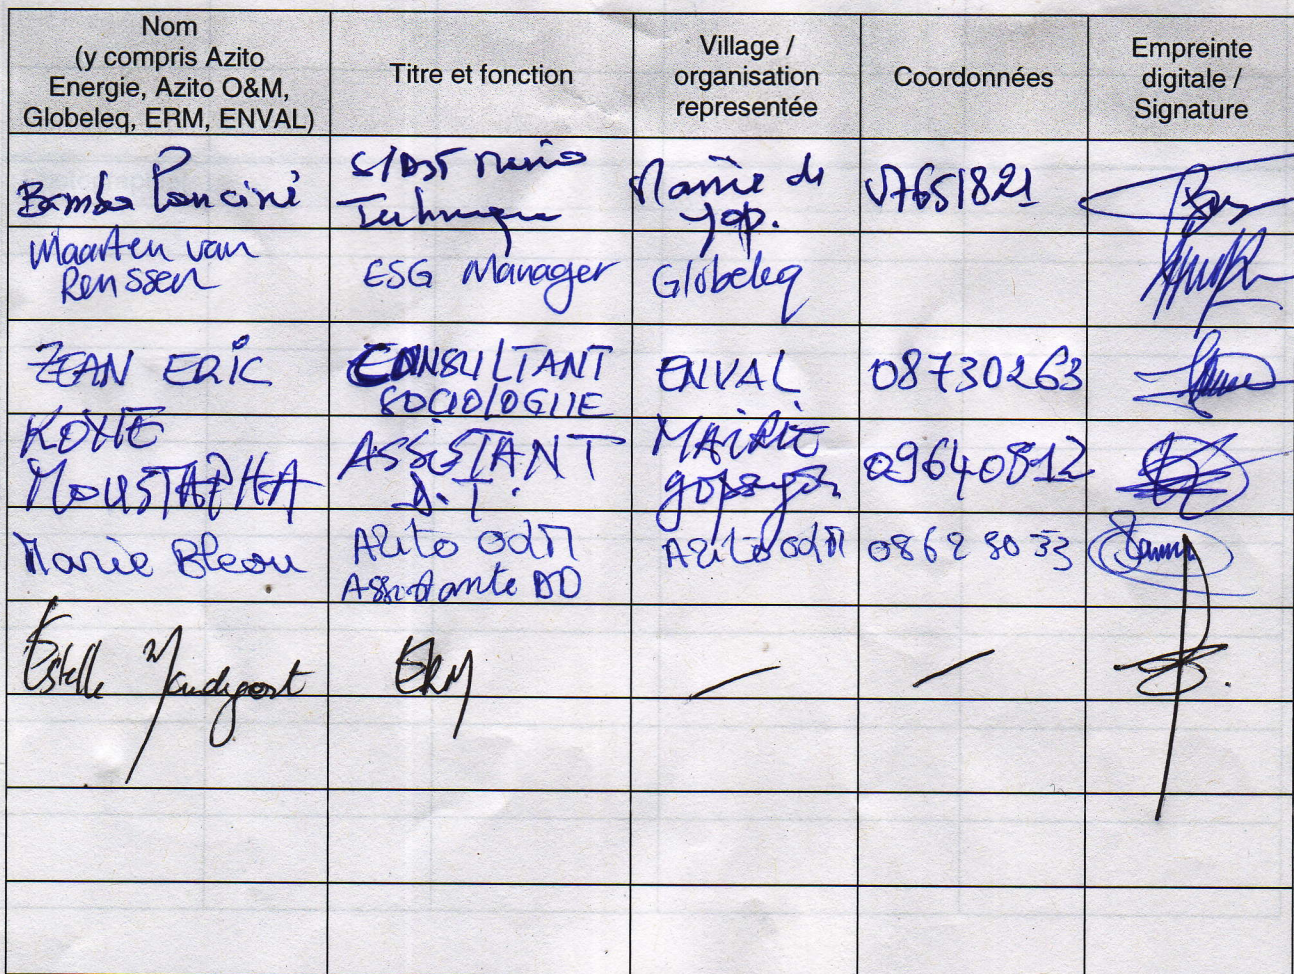 Nom
(y compris Azito
Energie, Azito O&M,
Globeleq, ERM, ENVAL)
Titre et fonction
Village /
organisation
representée
Coordonnées
Empreinte
digitale /
Signature
Bamba
Technique
Mairie de
Yop.
07651821
Maarten van
Renssen
ESG Manager
Globeleq
ZEAN ERIC
CONSULTANT
SOCIOLOGUE
ENVAL
08730263
KONE
MOUSTAPHA
ASSISTANT
D.T.
MAIRIE
yopougon
09640812
Marie Bleou
Azito O&M
Assistante DD
Azito O&M
08 62 80 33
Estelle
ERM